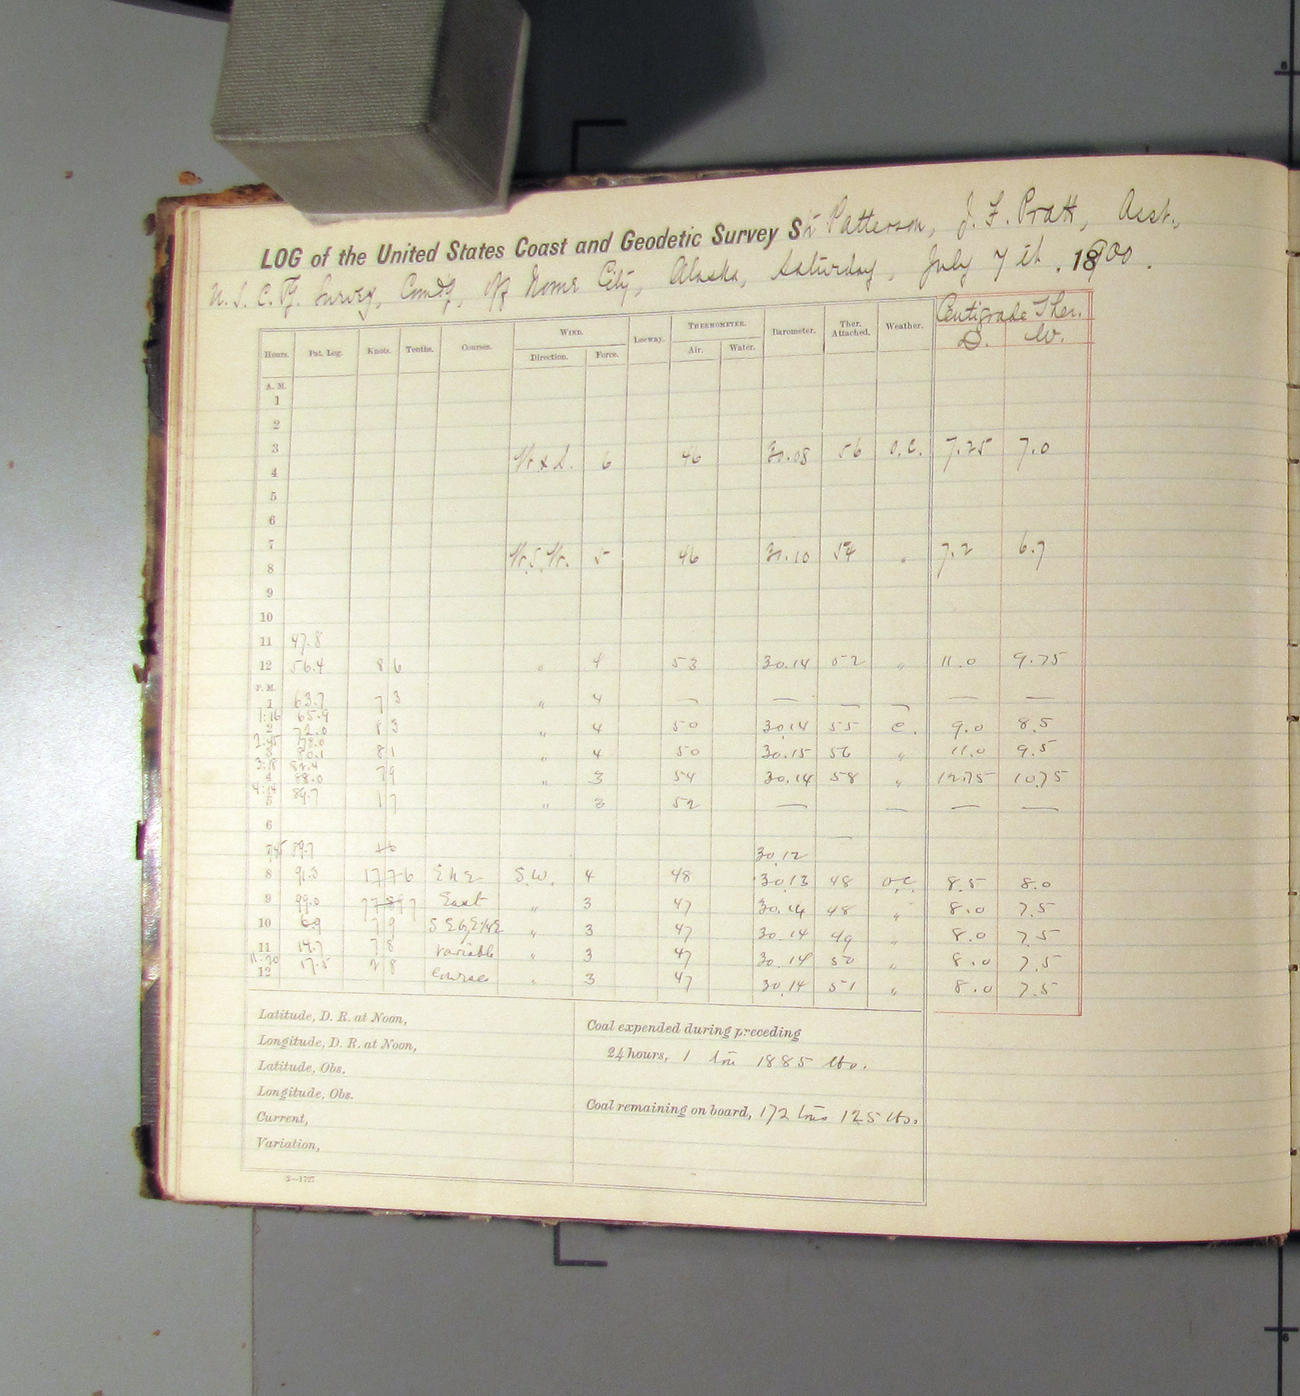 LOG of the United States Coast and Geodetic Survey Str Patterson, J. F. Pratt, Asst.,
U. S. C. & G. Survey, Comd'g, Off Nome City, Alaska, Saturday, July 7th, 1900.
Hours. Pat. Log. Knots. Tenths. Courses. WIND. Leeway. THERMOMETER. Barometer. Ther. Attached. Weather. Centigrade Ther.
Direction. Force. Air. Water. D. W.
A. M.
1
2
3
4 W & S. 6 46 30.08 56 O.C. 7.25 7.0
5
6
7
8 W.S.W. 5 46 30.10 54 " 7.2 6.7
9
10
11 47.8
12 56.4 8 6 " 4 53 30.14 52 " 11.0 9.75
P. M.
1 63.7 7 3 " 4 — — — — — —
1:16 65.9
2 72.0 8 3 " 4 50 30.14 55 C. 9.0 8.5
2:45 78.0
3 80.1 8 1 " 4 50 30.15 56 " 11.0 9.5
3:18 82.4
4 88.0 7 9 " 3 54 30.14 58 " 12.75 10.75
4:14 89.7
5 1 7 " 3 52 — — — —
6 —
7 45 89.7 30.12
8 91.3 S.W. 4 48 30.13 48 O.C. 8.5 8.0
9 99.0 East " 3 47 30.14 48 " 8.0 7.5
10 6.9 7 9 S E by E ½ E " 3 47 30.14 49 " 8.0 7.5
11 14.7 7 8 Variable " 3 47 30.14 50 " 8.0 7.5
11:20
12 17.5 2 8 Courses " 3 47 30.14 51 " 8.0 7.5
Latitude, D. R. at Noon,
Longitude, D. R. at Noon,
Latitude, Obs.
Longitude, Obs.
Current,
Variation,
Coal expended during preceding
24 hours, 1 ton 1885 lbs.
Coal remaining on board, 172 tons 125 lbs.
2—1727